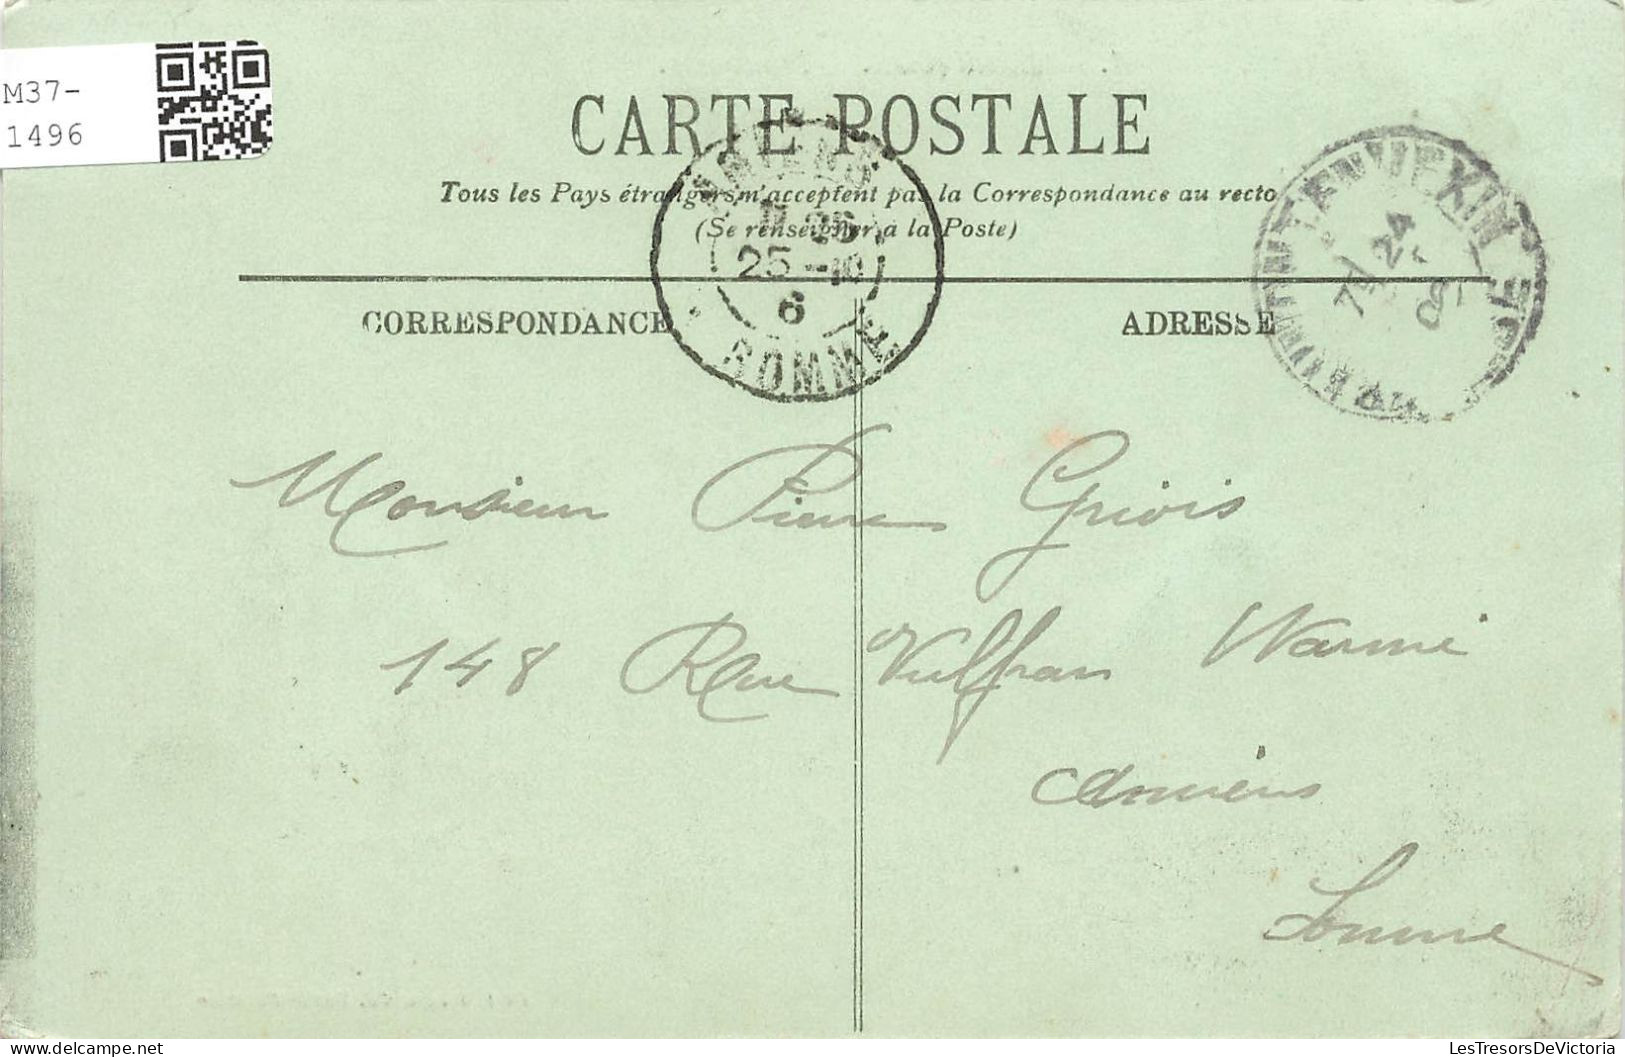 M37-
1496
CARTE POSTALE
Tous les Pays étrangers m'acceptent pas la Correspondance au recto
(Se renseigner à la Poste)
AMIENS
25 -10
6
SOMME
EN VEXIN
24
CORRESPONDANCE
ADRESSE
Monsieur Pierre Griois
148 Rue Vulfran Warmé
Amiens
Somme
LesTresorsDeVictoria
www.delcampe.net